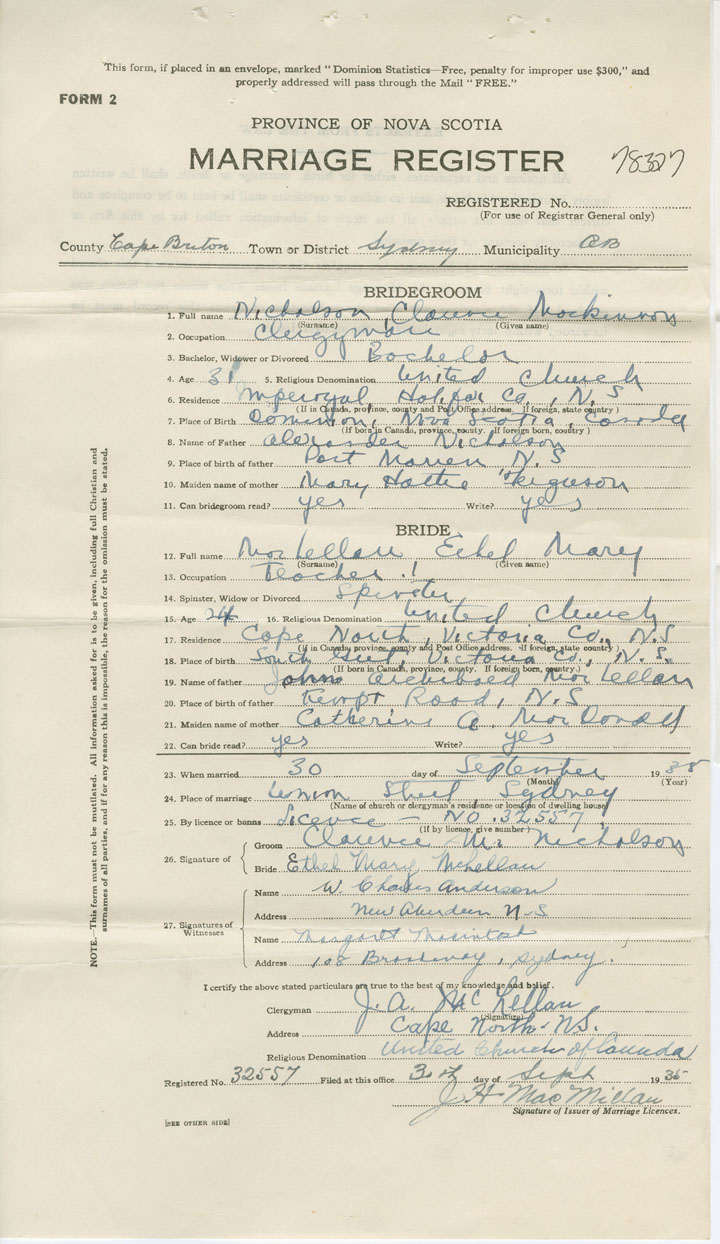 This form, if placed in an envelope, marked "Dominion Statistics—Free, penalty for improper use $300," and
properly addressed will pass through the Mail "FREE."
FORM 2
PROVINCE OF NOVA SCOTIA
MARRIAGE REGISTER 78327
REGISTERED No.
(For use of Registrar General only)
County Cape Breton Town or District Sydney Municipality CB
BRIDEGROOM
1. Full name Nicholson, Clarence Mackinnon
(Surname) (Given name)
2. Occupation Clergyman
3. Bachelor, Widower or Divorced Bachelor
4. Age 31 5. Religious Denomination United Church
6. Residence Imperoyal Halifax Co., N.S
(If in Canada, province, county and Post Office address. If foreign, state country)
7. Place of Birth Dominion, Nova Scotia, Canada
(If born in Canada, province, county. If foreign born, country)
8. Name of Father Alexander Nicholson
9. Place of birth of father Port Morien, N.S
10. Maiden name of mother Mary Hattie Ferguson
11. Can bridegroom read? yes Write? yes
BRIDE
12. Full name MacLellan Ethel Mary
(Surname) (Given name)
13. Occupation Teacher
14. Spinster, Widow or Divorced Spinster
15. Age 24 16. Religious Denomination United Church
17. Residence Cape North, Victoria Co., N.S
(If in Canada province, county and Post Office address. If foreign, state country)
18. Place of birth South Gut, Victoria Co., N.S.
(If born in Canada, province, county. If foreign born, country.)
19. Name of father John Archibald MacLellan
20. Place of birth of father Kempt Road, N.S
21. Maiden name of mother Catherine A. MacDonald
22. Can bride read? yes Write? yes
23. When married 30 day of September 19
(Month) (Year)
24. Place of marriage Union Street, Sydney
(Name of church or clergyman's residence or location of dwelling house)
25. By licence or banns Licence — No. 32557
(If by licence, give number)
26. Signature of Groom Clarence M. Nicholson
Bride Ethel Mary McLellan
27. Signatures of Witnesses
Name W. Charles Anderson
Address New Aberdeen N.S
Name Margaret Macintosh
Address 108 Broadway, Sydney.
I certify the above stated particulars are true to the best of my knowledge and belief.
Clergyman J. A. McLellan
(Signature)
Address Cape North N.S.
Religious Denomination United Church of Canada
Registered No. 32557 Filed at this office 30th day of Sept 1935
J. H. MacMillan
Signature of Issuer of Marriage Licences.
[SEE OTHER SIDE]
NOTE.—This form must not be mutilated. All information asked for is to be given, including full Christian and
surnames of all parties, and if for any reason this is impossible, the reason for the omission must be stated.